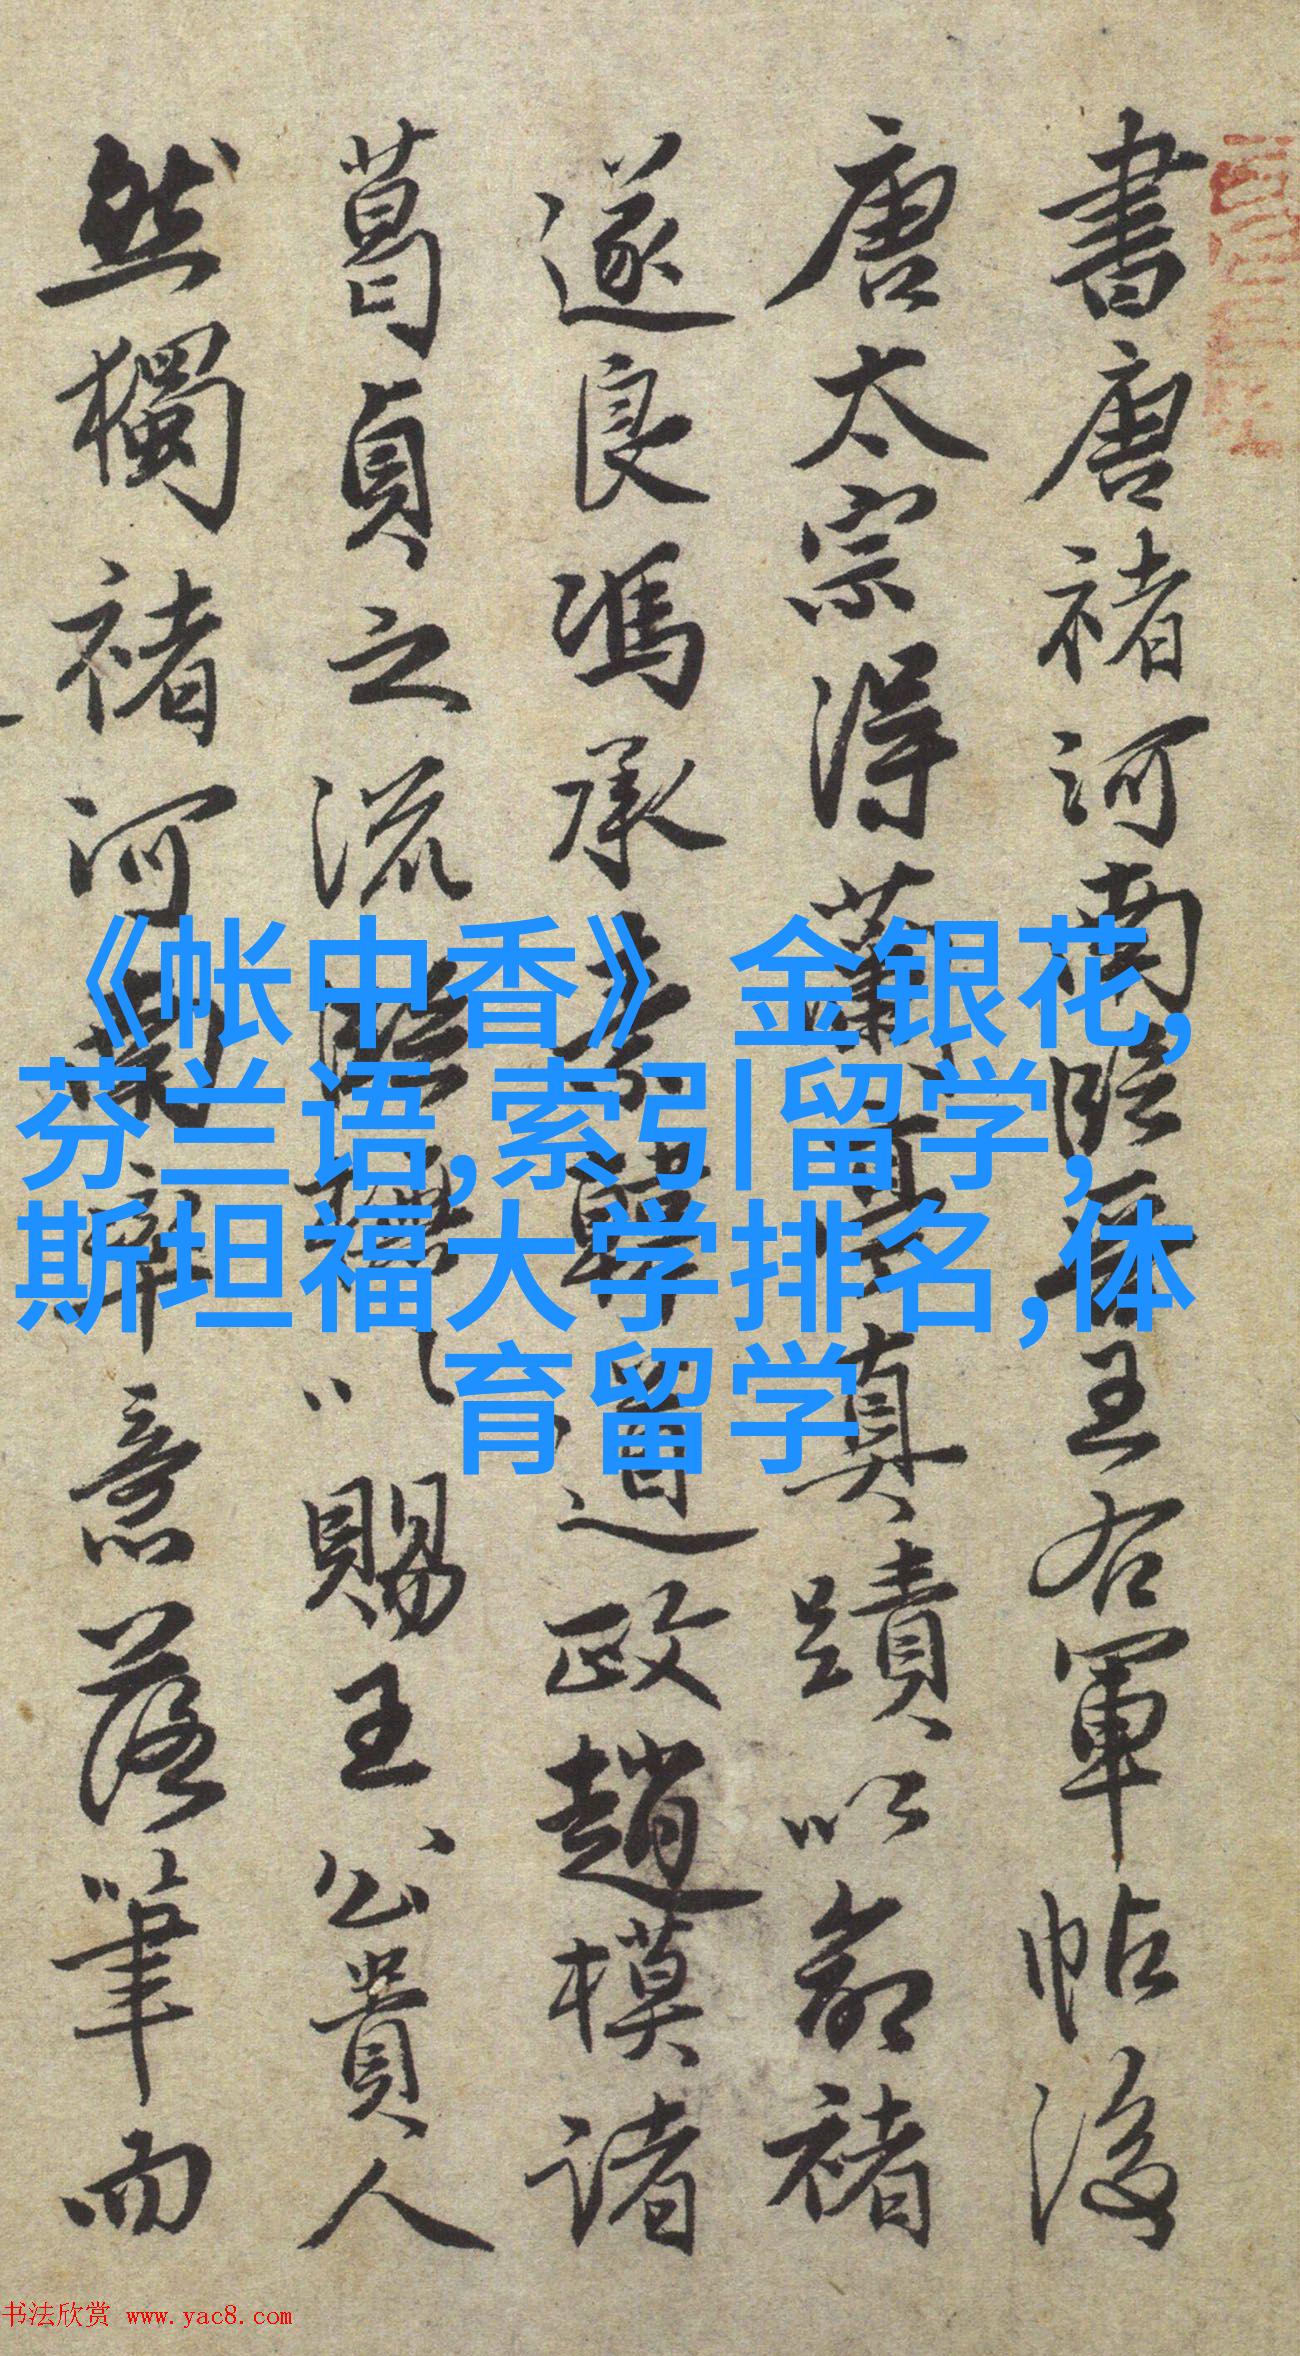 書唐褚河南臨晉王右軍帖後
唐太宗得蘭亭真蹟以命褚
遂良馮承素韓道政趙模諸
葛貞之流臨以賜王公貴人
然獨褚河南意落筆而
《帐中香》金银花,
芬兰语,索引留学,
斯坦福大学排名,体
育留学
书法欣赏 www.yac8.com